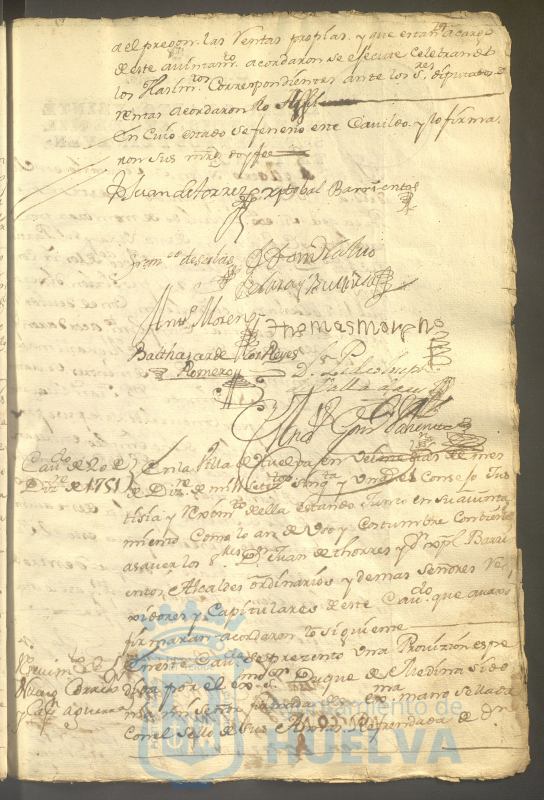 a el pregon. las Ventas propias. y que estan a cargo
de este ayuntamto. acordaron se esecute celebrandose
los Hasimtos. Correspondientes ante los Sres. diputados de
rentas acordaronlo
En cuio estado se fenecio este Cavildo. y lo firma
ron sus mrzds. doy fee
Juan de torrez xptobal Barrientos
franco. de
Anto. Moreno thomas moreno
Balthasar de los Reyes
Romero
Cavdo. de 20 de
Dizre. de 1751
En la Villa de Huelva en veinte dias de mes
de Dizre. de mil setectos. sinqta. y un el Consejo Jus
tisia y reximto. de ella estando Junto en su aiunta
miento Como lo an de Uso y Costumbre Combiene
a saver los Sres. Dn. Juan de thorres y Dn. xptl. Barri
entos, Alcaldes ordinarios y demas señores Re
xidores y Capitulares de este Cavdo. que avaxo
firmaran acordaron lo siguiente
En este Cavdo. se prezento una Provizion espe
dida por el exmo. Sr. Duque de Medina Sido
nia mano sellada
con el sello de sus Armas. Refrendada de Dn.
Ayuntamiento de
HUELVA